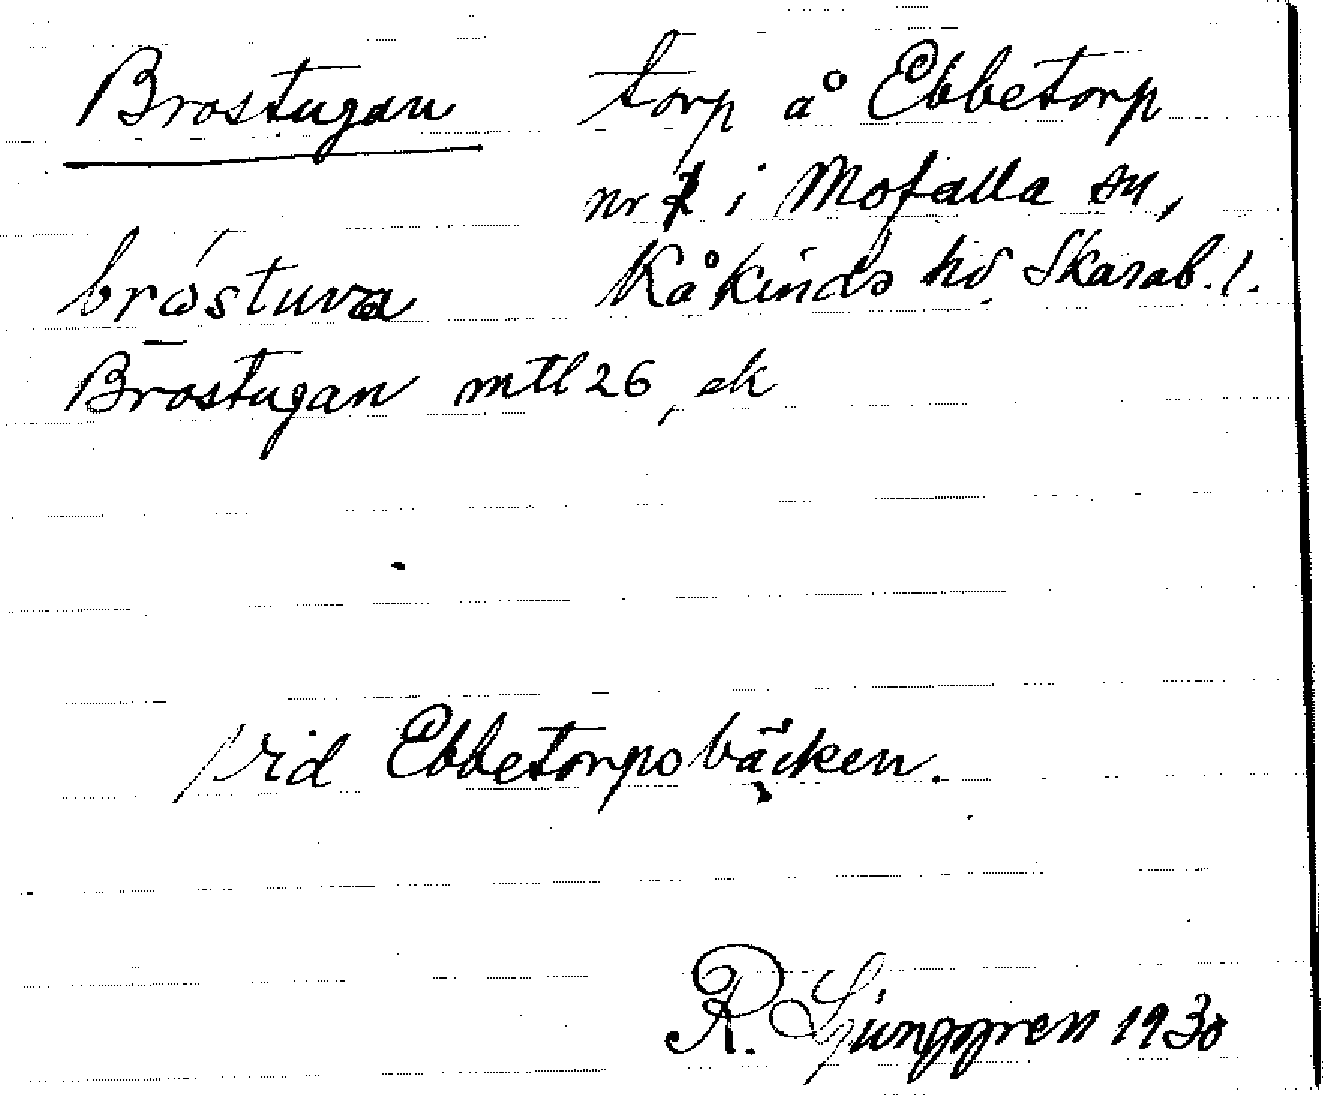 Brostugan torp å Ebbetorp
nr 1 i Mofalla sn,
bróstuva Kåkinds hd. Skarab. l.
Brostugan mtl 26, ek
vid Ebbetorpsbäcken.
R. Ljunggren 1930